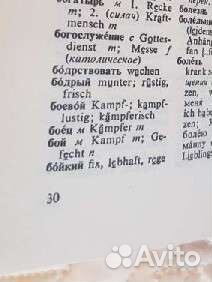 богатырь м 1. Recke
m; 2. (силач) Kraft-
mensch m
богослужение с Gottes-
dienst m; Messe f
(католическое)
бодрствовать wachen
бодрый munter; rüstig,
frisch
боевой Kampf-; kampf-
lustig; kämpferisch
боец м Kämpfer m
бой м Kampf m; Ge-
fecht n
бойкий fix, lebhaft, rege
30
болезн
(leiden
Anhän
fan
болеть
krank s
zen
ich ha
zen;
wo
Lieblings
Avito